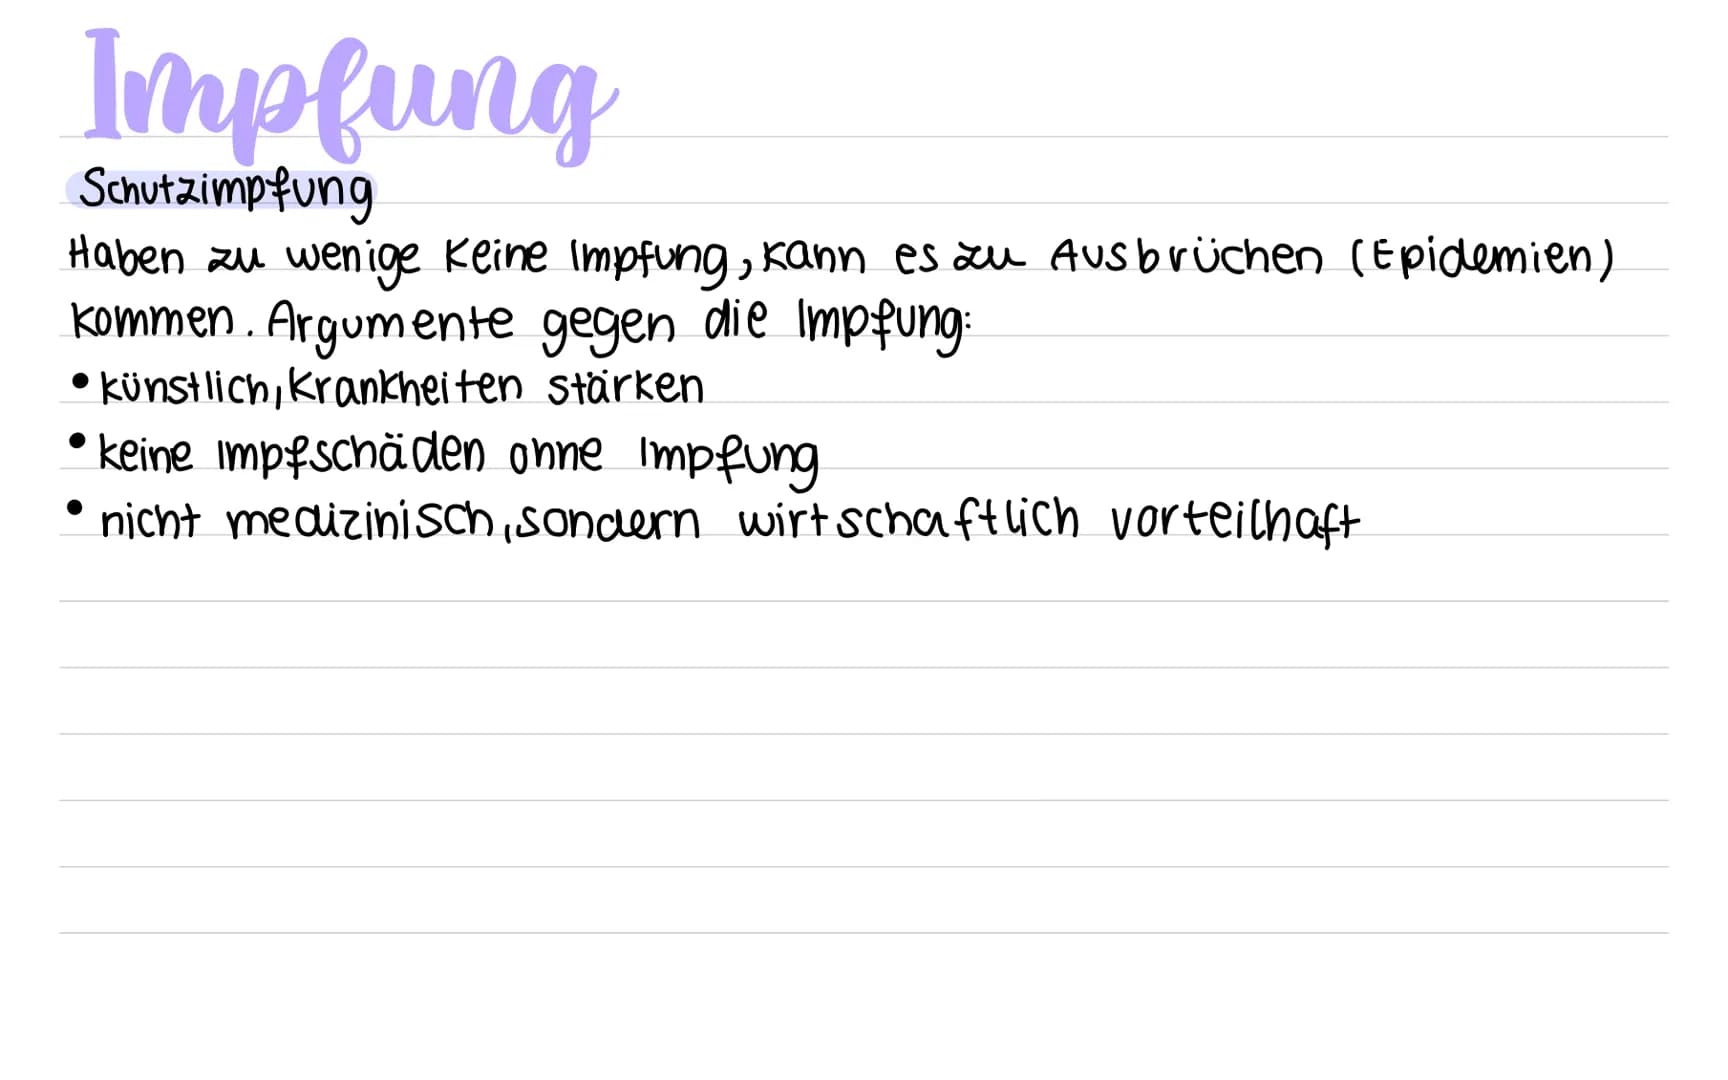 Impfung
Schutzimpfung
Haben zu wenige keine Impfung, kann es zu Ausbrüchen (Epidemien)
kommen. Argumente gegen die Impfung:
• künstlich, Krankheiten stärken
• keine Impfschäden ohne Impfung
• nicht medizinisch, sondern wirtschaftlich vorteilhaft